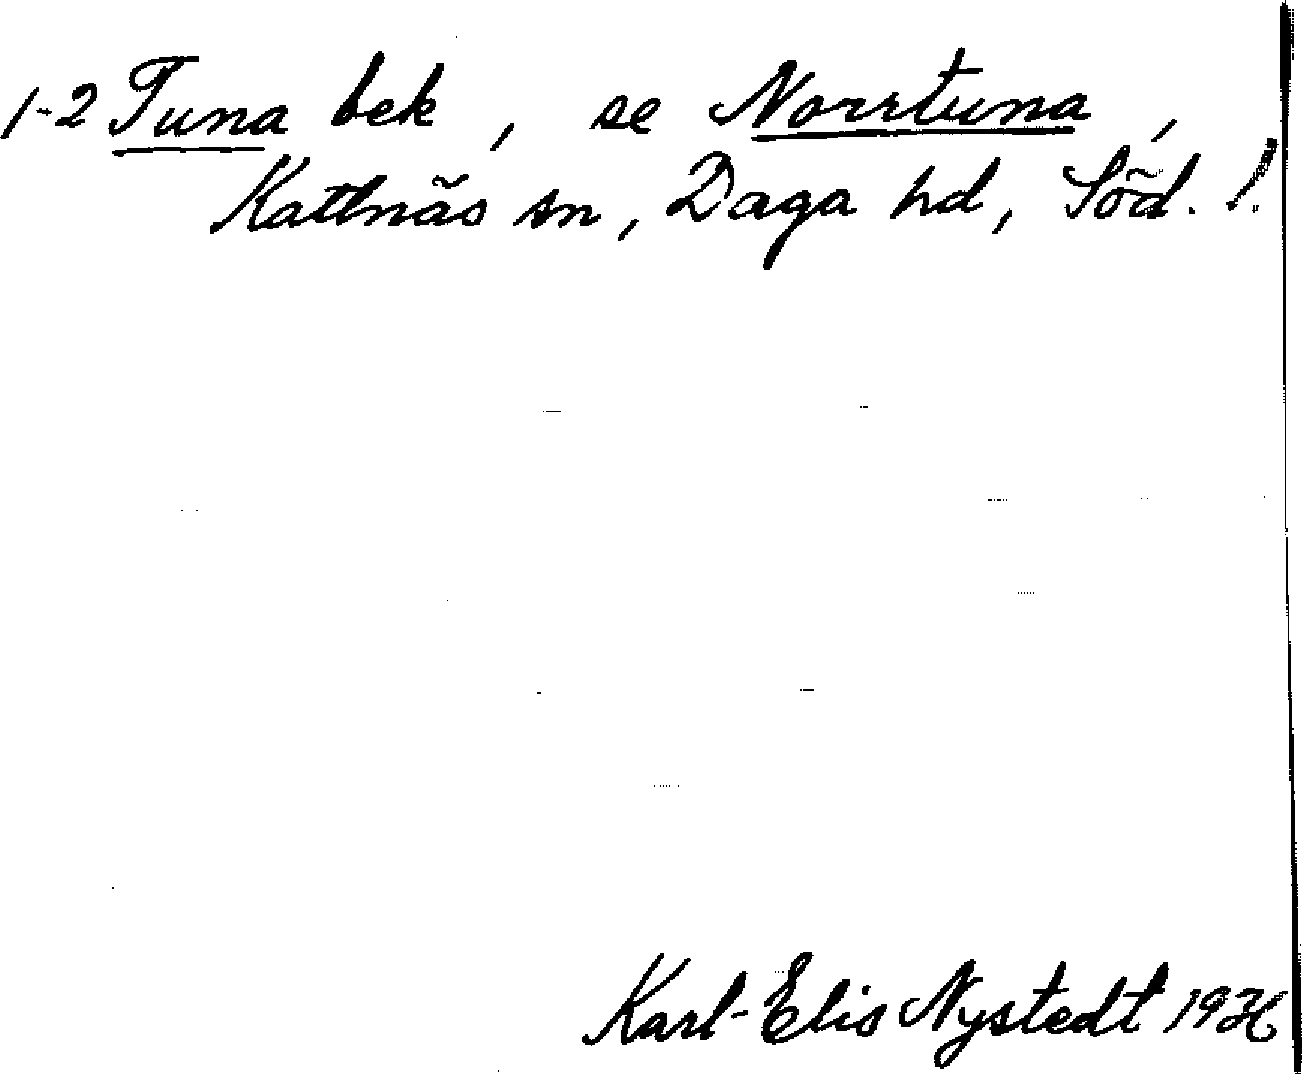 1-2 Tuna bek, se Norrtuna,
Kattnäs sn, Daga hd, Söd. !
Karl-Elis Nystedt 1936